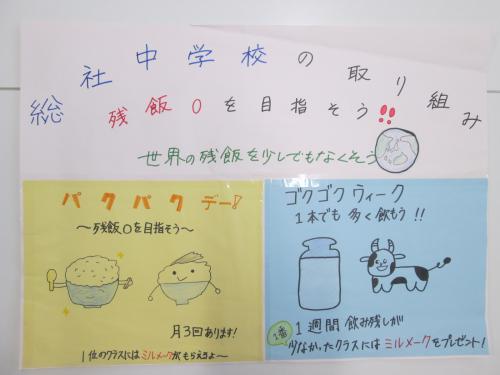 総社中学校の取り組み
残飯0を目指そう!!
世界の残飯を少しでもなくそう
パクパクデー!
〜残飯0を目指そう〜
月3回あります!
1位のクラスにはミルメークがもらえるよ〜
ゴクゴクウィーク
1本でも多く飲もう!!
1週間飲み残しが
1番
少なかったクラスにはミルメークをプレゼント!